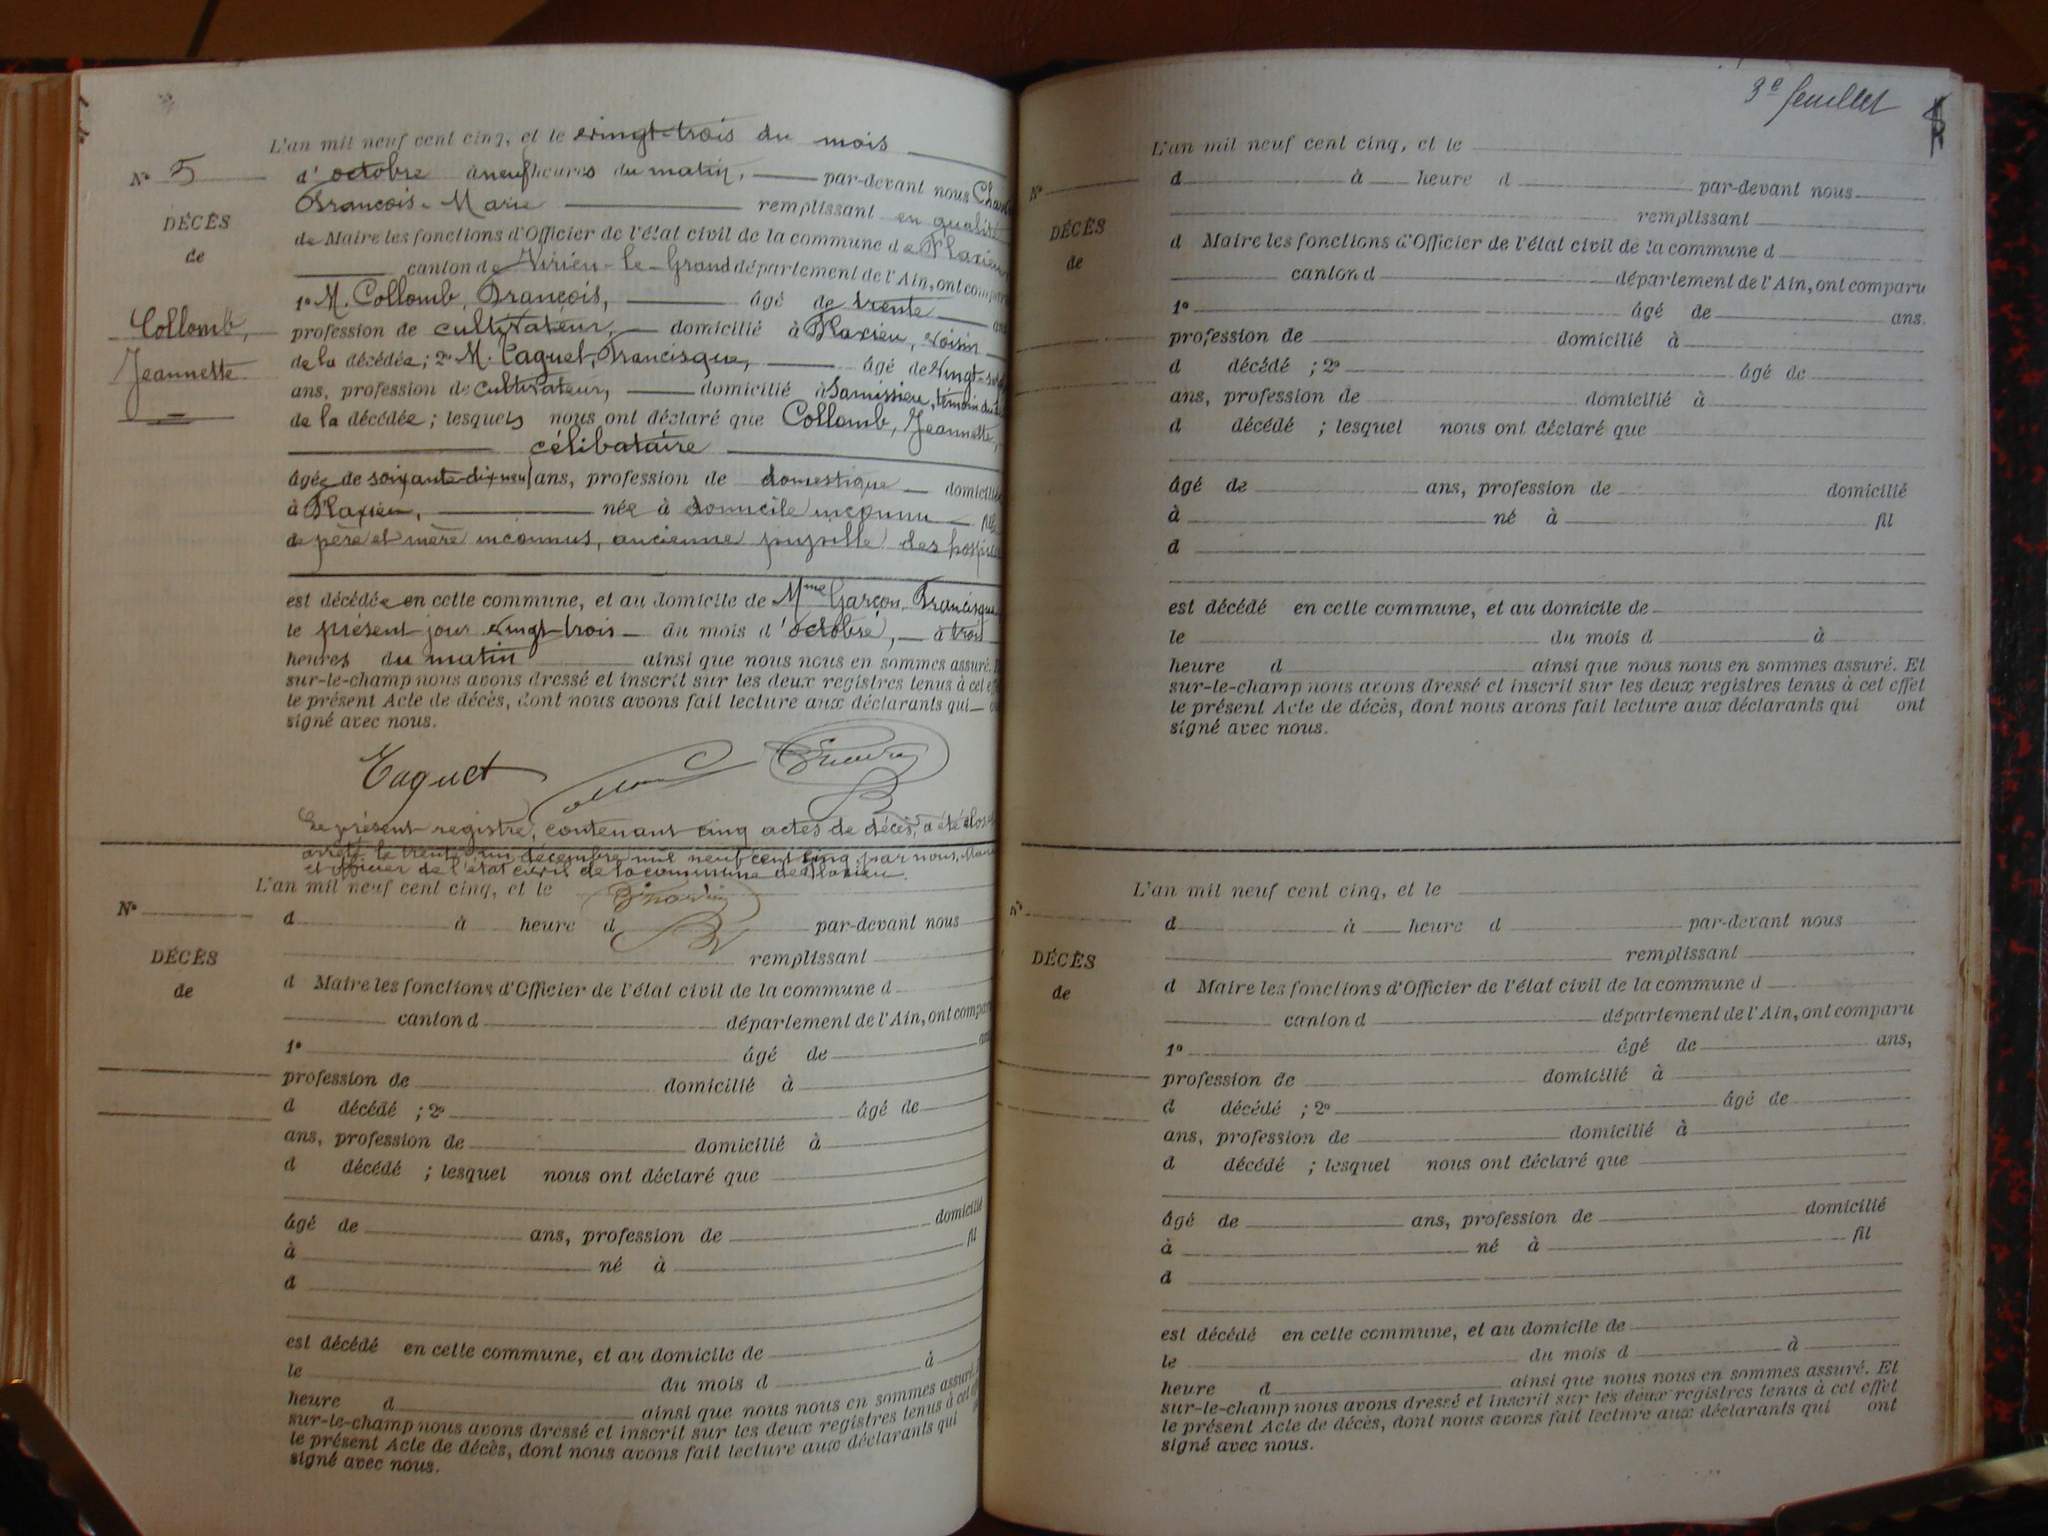 L'an mil neuf cent cinq, et le vingt-trois du mois
N° 5
d'octobre à neuf heures du matin, par-devant nous
François-Marie remplissant en qualité
DÉCÈS
de Maire les fonctions d'Officier de l'état civil de la commune de
de
canton de Virieu-le-Grand département de l'Ain, ont comparu
1° M. Collomb, François, âgé de trente ans
Collomb,
profession de cultivateur, domicilié à voisin
Jeannette
de la décédée ; 2° M. Caquet, Francisque, âgé de
ans, profession de cultivateur, domicilié à Samissieu, témoin
de la décédée ; lesquels nous ont déclaré que Collomb, Jeannette,
célibataire
âgée de soixante-dix-neuf ans, profession de domestique domiciliée
à née à domicile inconnu fille
de père et mère inconnus, ancienne pupille des hospices
est décédée en cette commune, et au domicile de Mme Garçon, Francisque
le présent jour vingt-trois du mois d'octobre, à trois
heures du matin ainsi que nous nous en sommes assuré. Et
sur-le-champ nous avons dressé et inscrit sur les deux registres tenus à cet effet
le présent Acte de décès, dont nous avons fait lecture aux déclarants qui ont
signé avec nous.
Caquet
Le présent registre, contenant cinq actes de décès, a été clos et
arrêté le trente-un décembre mil neuf cent cinq par nous, Maire
et officier de l'état civil de la commune de
L'an mil neuf cent cinq, et le
N°
d à heure d par-devant nous
remplissant
DÉCÈS
d Maire les fonctions d'Officier de l'état civil de la commune d
de
canton d département de l'Ain, ont comparu
1° âgé de ans
profession de domicilié à
d décédé ; 2° âgé de
ans, profession de domicilié à
d décédé ; lesquel nous ont déclaré que
âgé de ans, profession de domicilié
à né à fil
d
est décédé en cette commune, et au domicile de
le du mois d à
heure d ainsi que nous nous en sommes assuré.
sur-le-champ nous avons dressé et inscrit sur les deux registres tenus à cet effet
le présent Acte de décès, dont nous avons fait lecture aux déclarants qui
signé avec nous.
3e feuillet
L'an mil neuf cent cinq, et le
N°
d à heure d par-devant nous
remplissant
DÉCÈS
d Maire les fonctions d'Officier de l'état civil de la commune d
de
canton d département de l'Ain, ont comparu
1° âgé de ans.
profession de domicilié à
d décédé ; 2° âgé de
ans, profession de domicilié à
d décédé ; lesquel nous ont déclaré que
âgé de ans, profession de domicilié
à né à fil
d
est décédé en cette commune, et au domicile de
le du mois d à
heure d ainsi que nous nous en sommes assuré. Et
sur-le-champ nous avons dressé et inscrit sur les deux registres tenus à cet effet
le présent Acte de décès, dont nous avons fait lecture aux déclarants qui ont
signé avec nous.
L'an mil neuf cent cinq, et le
N°
d à heure d par-devant nous
remplissant
DÉCÈS
d Maire les fonctions d'Officier de l'état civil de la commune d
de
canton d département de l'Ain, ont comparu
1° âgé de ans,
profession de domicilié à
d décédé ; 2° âgé de
ans, profession de domicilié à
d décédé ; lesquel nous ont déclaré que
âgé de ans, profession de domicilié
à né à fil
d
est décédé en cette commune, et au domicile de
le du mois d à
heure d ainsi que nous nous en sommes assuré. Et
sur-le-champ nous avons dressé et inscrit sur les deux registres tenus à cet effet
le présent Acte de décès, dont nous avons fait lecture aux déclarants qui ont
signé avec nous.